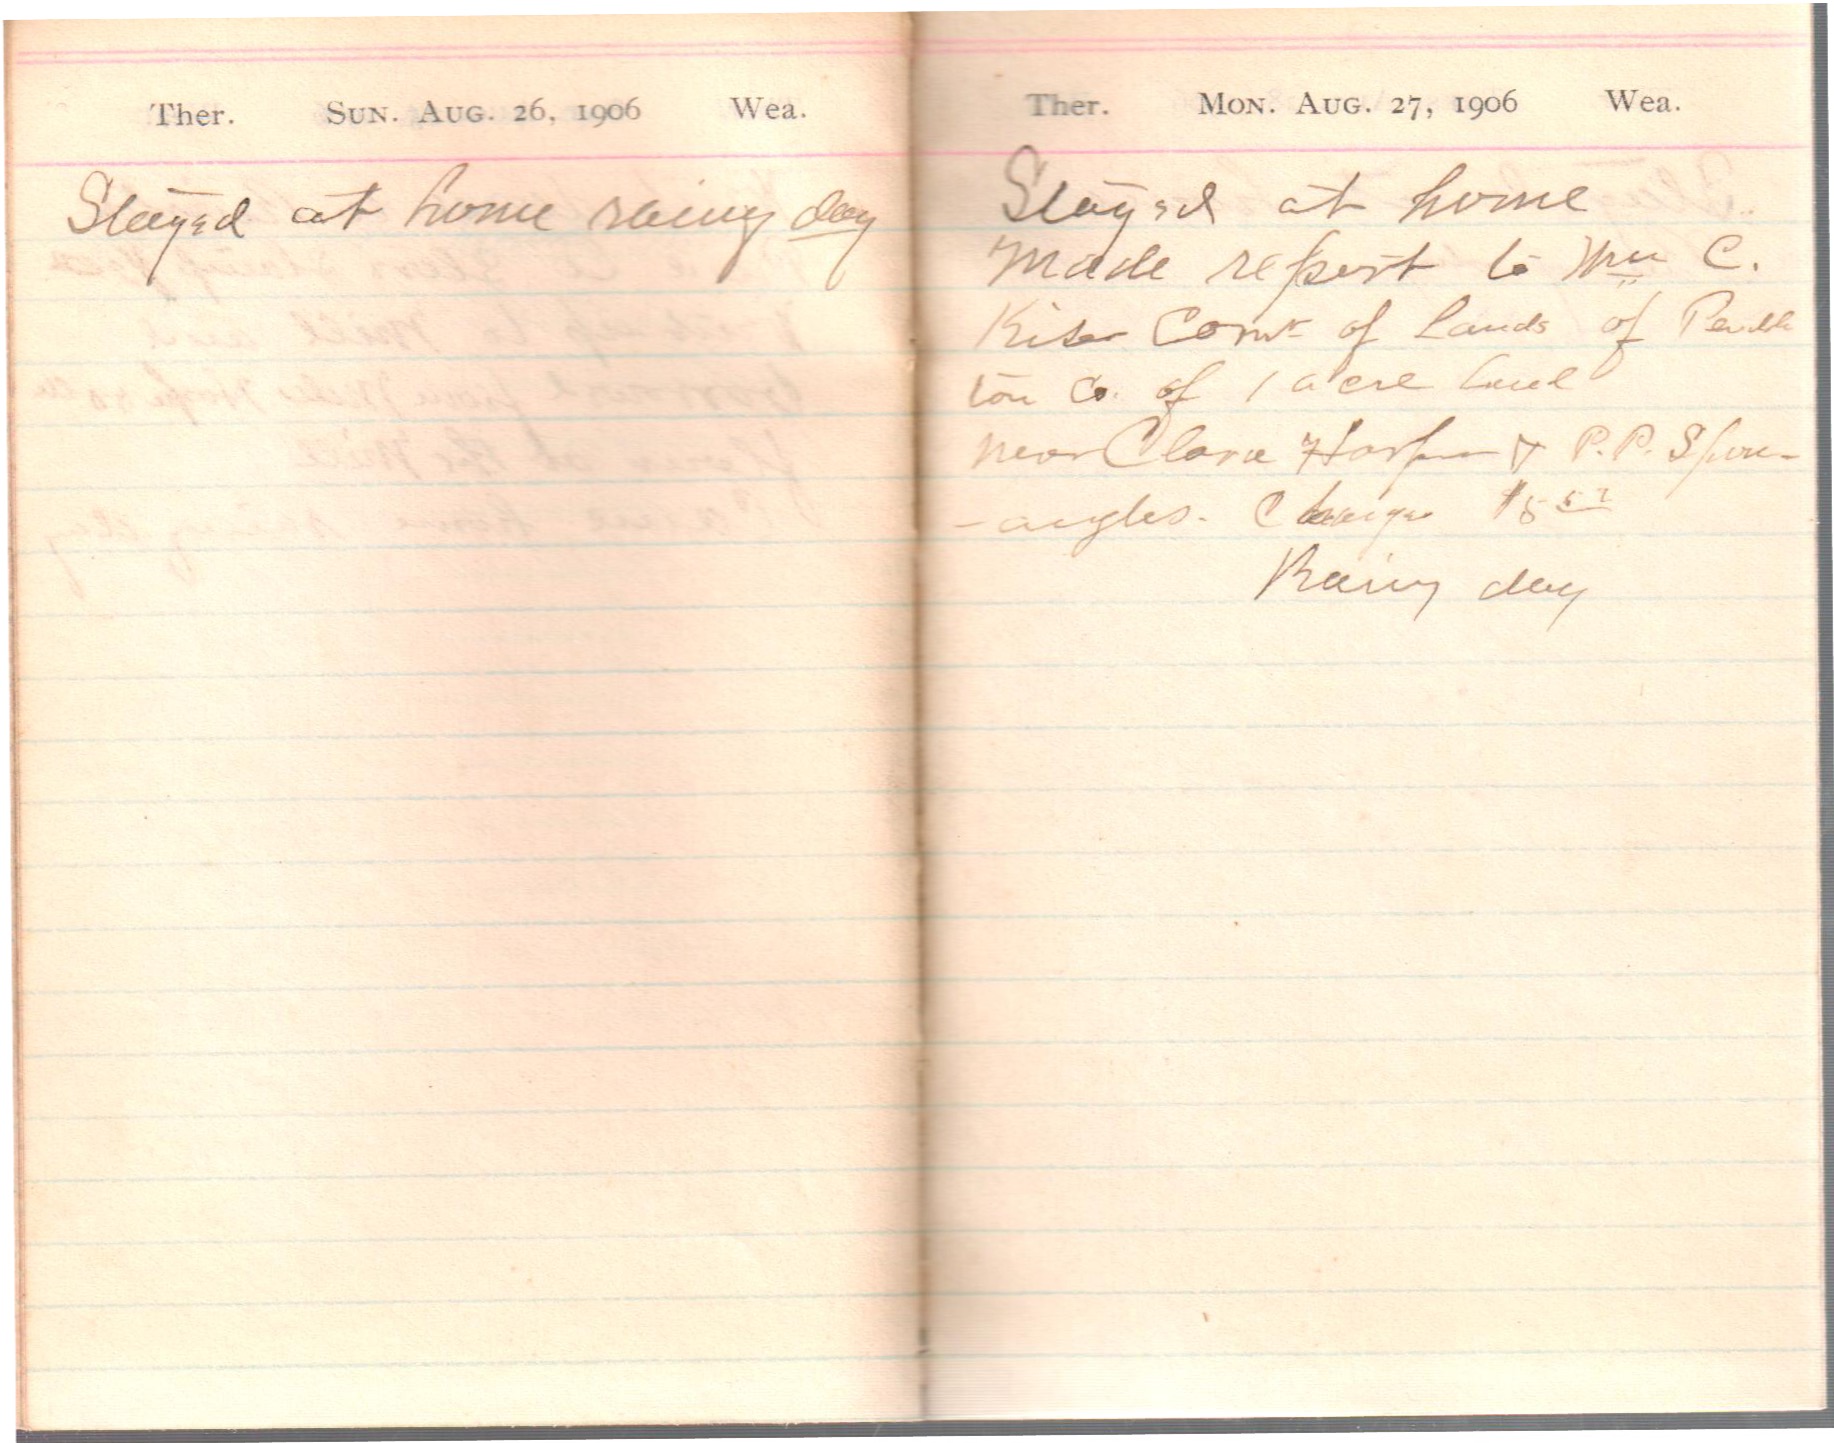 Ther. Sun. Aug. 26, 1906 Wea.
Stayed at home rainy day
Ther. Mon. Aug. 27, 1906 Wea.
Stayed at home
Made report to Wm C.
Kiser Comr of Lands of Pendle
ton Co. of 1 acre land
near Clara Harper & P.P. Spon-
-augles. Charge
Rainy day